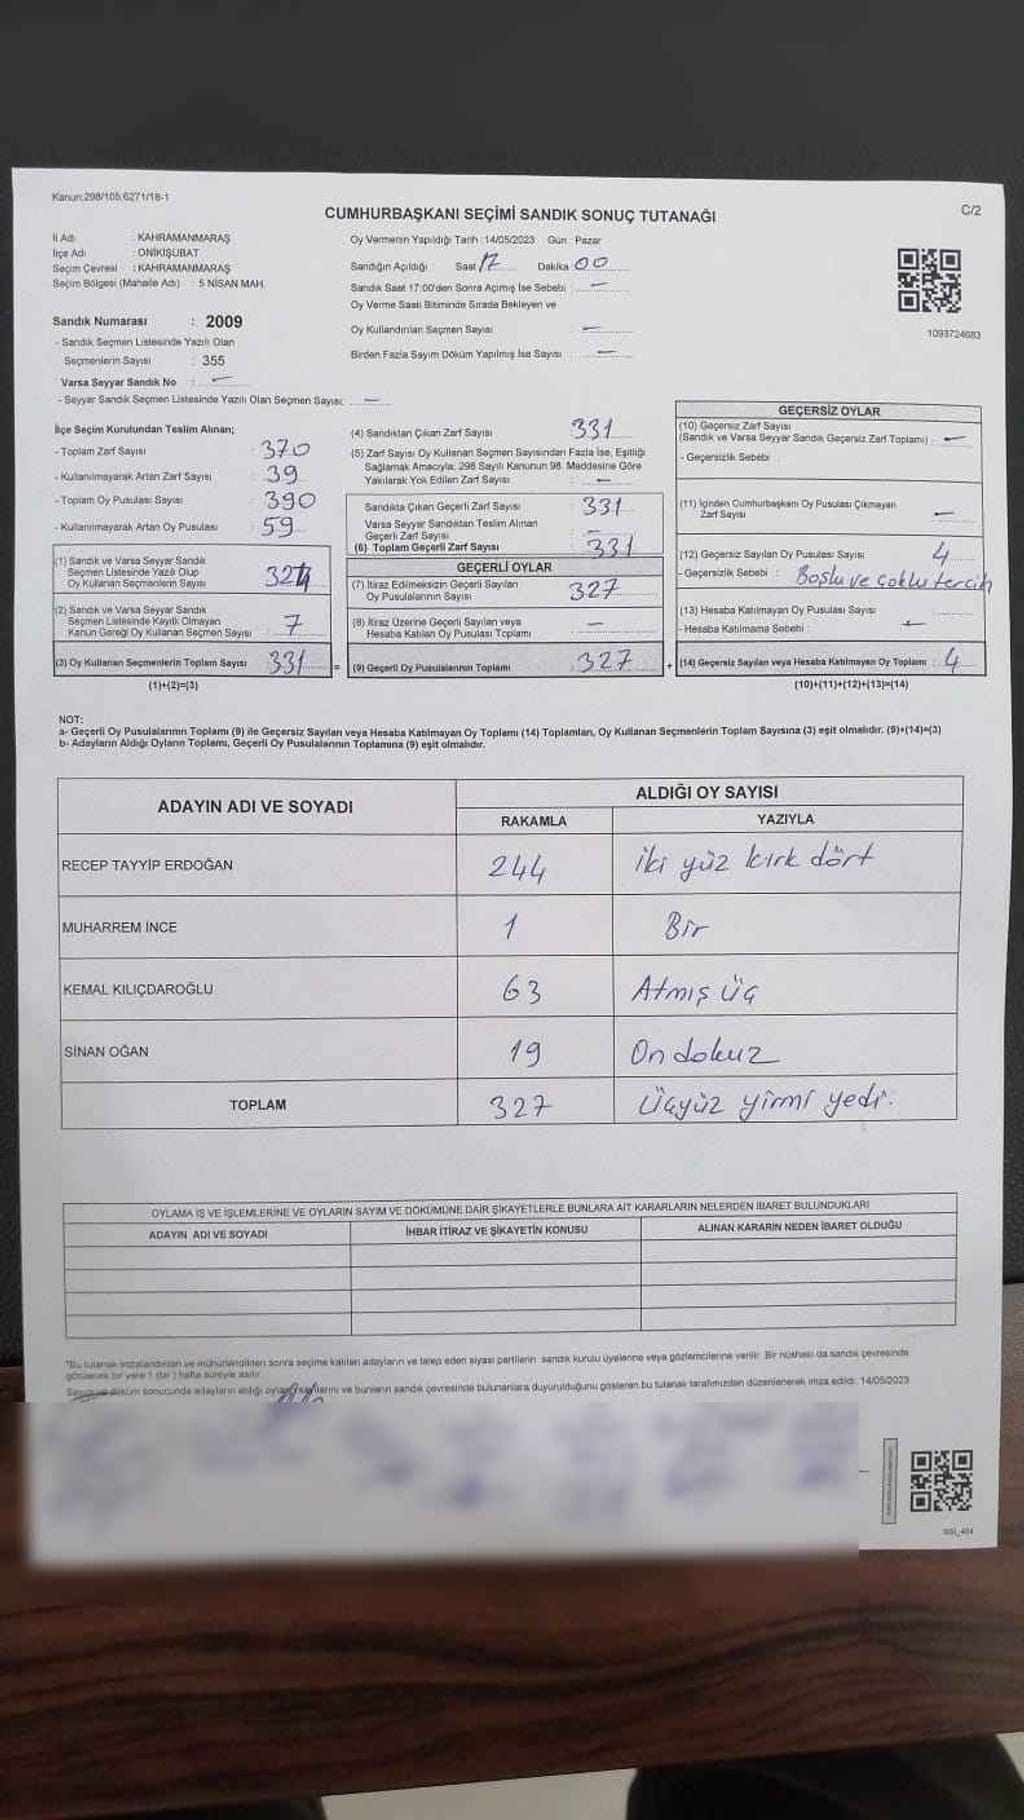 Kanun:298/105,6271/18-1
C/2
CUMHURBAŞKANI SEÇİMİ SANDIK SONUÇ TUTANAĞI
İl Adı : KAHRAMANMARAŞ
İlçe Adı : ONİKİŞUBAT
Seçim Çevresi : KAHRAMANMARAŞ
Seçim Bölgesi (Mahalle Adı) : 5 NİSAN MAH.
Oy Vermenin Yapıldığı Tarih :14/05/2023 Gün : Pazar
Sandığın Açıldığı Saat 17 Dakika 00
Sandık Saat 17:00'den Sonra Açımış İse Sebebi : —
Oy Verme Saati Bitiminde Sırada Bekleyen ve
Oy Kullandırılan Seçmen Sayısı —
Birden Fazla Sayım Döküm Yapılmış İse Sayısı : —
1093724683
Sandık Numarası : 2009
- Sandık Seçmen Listesinde Yazılı Olan
Seçmenlerin Sayısı : 355
Varsa Seyyar Sandık No : —
- Seyyar Sandık Seçmen Listesinde Yazılı Olan Seçmen Sayısı: —
İlçe Seçim Kurulundan Teslim Alınan;
- Toplam Zarf Sayısı : 370
- Kullanılmayarak Artan Zarf Sayısı : 39
- Toplam Oy Pusulası Sayısı : 390
- Kullanılmayarak Artan Oy Pusulası : 59
(1) Sandık ve Varsa Seyyar Sandık
Seçmen Listesinde Yazılı Olup
Oy Kullanan Seçmenlerin Sayısı 324
(2) Sandık ve Varsa Seyyar Sandık
Seçmen Listesinde Kayıtlı Olmayan
Kanun Gereği Oy Kullanan Seçmen Sayısı 7
(3) Oy Kullanan Seçmenlerin Toplam Sayısı 331 =
(1)+(2)=(3)
(4) Sandıktan Çıkan Zarf Sayısı 331
(5) Zarf Sayısı Oy Kullanan Seçmen Sayısından Fazla İse, Eşitliği
Sağlamak Amacıyla, 298 Sayılı Kanunun 98. Maddesine Göre
Yakılarak Yok Edilen Zarf Sayısı : —
Sandıkta Çıkan Geçerli Zarf Sayısı 331
Varsa Seyyar Sandıktan Teslim Alınan
Geçerli Zarf Sayısı —
(6) Toplam Geçerli Zarf Sayısı 331
GEÇERLİ OYLAR
(7) İtiraz Edilmeksizin Geçerli Sayılan
Oy Pusulalarının Sayısı 327
(8) İtiraz Üzerine Geçerli Sayılan veya
Hesaba Katılan Oy Pusulası Toplamı —
(9) Geçerli Oy Pusulalarının Toplamı 327 +
GEÇERSİZ OYLAR
(10) Geçersiz Zarf Sayısı
(Sandık ve Varsa Seyyar Sandık Geçersiz Zarf Toplamı) : —
- Geçersizlik Sebebi :
(11) İçinden Cumhurbaşkanı Oy Pusulası Çıkmayan
Zarf Sayısı —
(12) Geçersiz Sayılan Oy Pusulası Sayısı 4
- Geçersizlik Sebebi : Boşlu ve Çoklu tercih
(13) Hesaba Katılmayan Oy Pusulası Sayısı
- Hesaba Katılmama Sebebi : —
(14) Geçersiz Sayılan veya Hesaba Katılmayan Oy Toplamı : 4
(10)+(11)+(12)+(13)=(14)
NOT:
a- Geçerli Oy Pusulalarının Toplamı (9) ile Geçersiz Sayılan veya Hesaba Katılmayan Oy Toplamı (14) Toplamları, Oy Kullanan Seçmenlerin Toplam Sayısına (3) eşit olmalıdır. (9)+(14)=(3)
b- Adayların Aldığı Oyların Toplamı, Geçerli Oy Pusulalarının Toplamına (9) eşit olmalıdır.
ADAYIN ADI VE SOYADI
ALDIĞI OY SAYISI
RAKAMLA YAZIYLA
RECEP TAYYİP ERDOĞAN 244 iki yüz kırk dört
MUHARREM İNCE 1 Bir
KEMAL KILIÇDAROĞLU 63 Atmış üç
SİNAN OĞAN 19 On dokuz
TOPLAM 327 Üçyüz yirmi yedi.
OYLAMA İŞ VE İŞLEMLERİNE VE OYLARIN SAYIM VE DÖKÜMÜNE DAİR ŞİKAYETLERLE BUNLARA AİT KARARLARIN NELERDEN İBARET BULUNDUKLARI
ADAYIN ADI VE SOYADI İHBAR İTİRAZ VE ŞİKAYETİN KONUSU ALINAN KARARIN NEDEN İBARET OLDUĞU
*Bu tutanak imzalandıktan ve mühürlendikten sonra seçime katılan adayların ve talep eden siyasi partilerin sandık kurulu üyelerine veya gözlemcilerine verilir. Bir nüshası da sandık çevresinde
görülecek bir yere 1 (bir) hafta süreyle asılır.
Sayım ve döküm sonucunda adayların aldığı oyların sayılarını ve bunların sandık çevresinde bulunanlara duyurulduğunu gösteren bu tutanak tarafımızdan düzenlenerek imza edildi. 14/05/2023